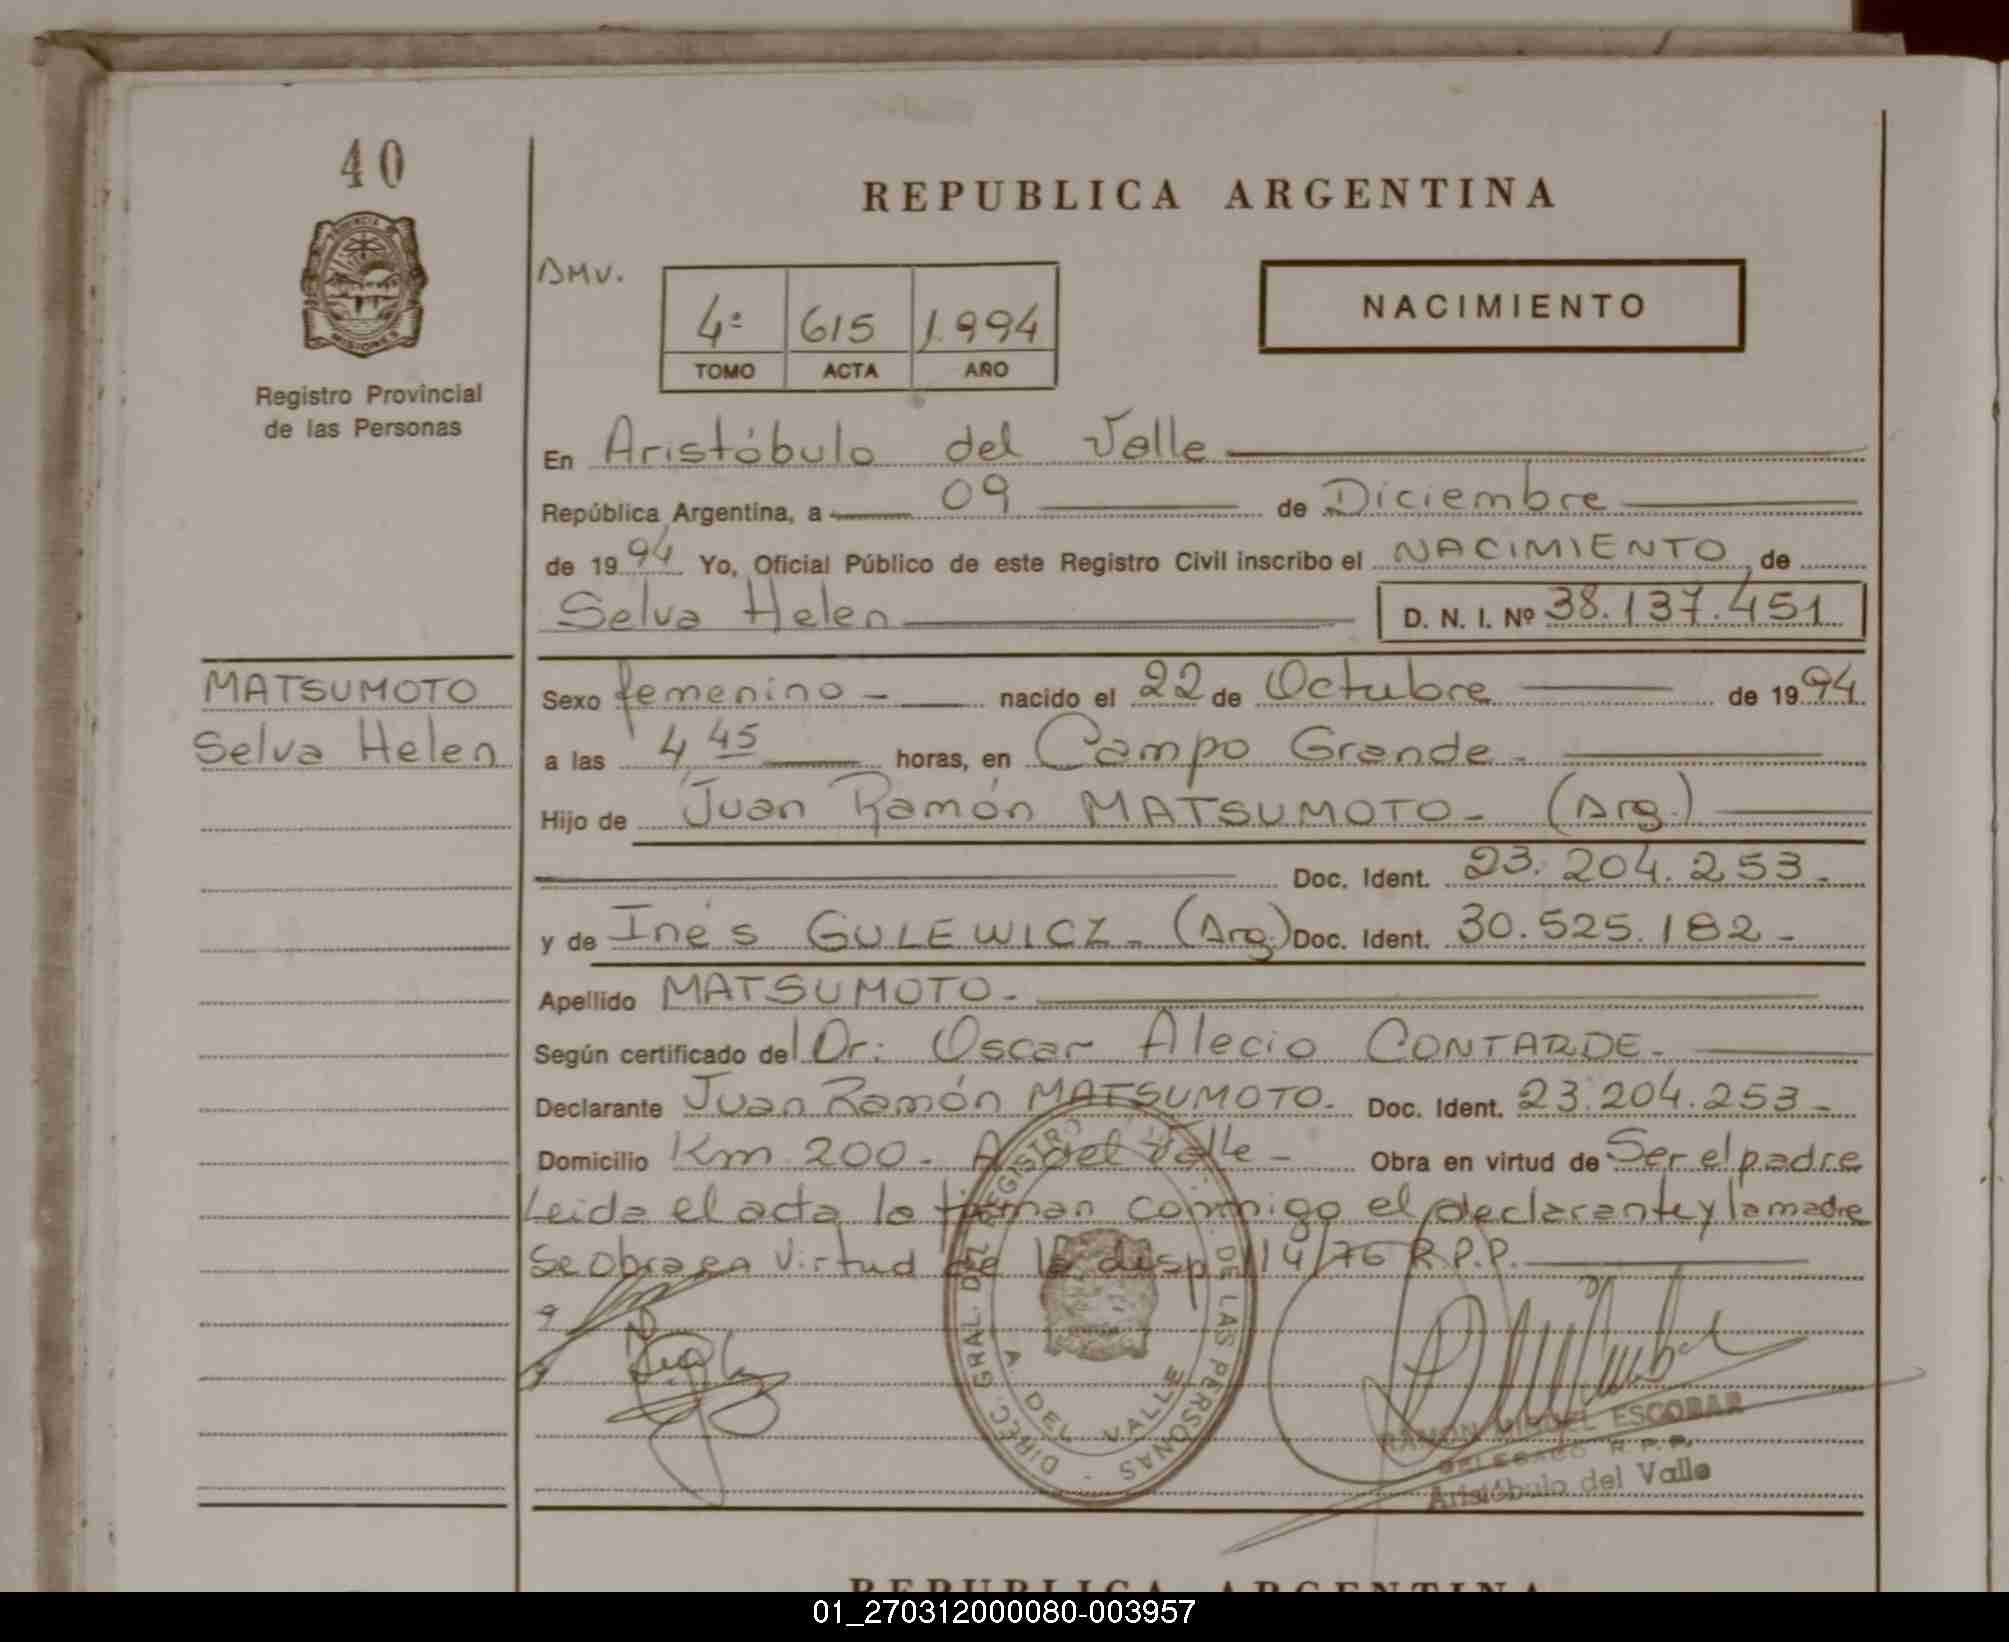 40
PROVINCIA DE
MISIONES
Registro Provincial
de las Personas
MATSUMOTO
Selva Helen
REPUBLICA ARGENTINA
AMV.
4º 615 1.994
TOMO ACTA AÑO
NACIMIENTO
En Aristóbulo del Valle
República Argentina, a 09 de Diciembre
de 1994 Yo, Oficial Público de este Registro Civil inscribo el NACIMIENTO de
Selva Helen D. N. I. Nº 38.137.451
Sexo femenino - nacido el 22 de Octubre de 1994
a las 4,45 horas, en Campo Grande -
Hijo de Juan Ramón MATSUMOTO - (Arg.)
Doc. Ident. 23.204.253 -
y de Inés GULEWICZ - (Arg.) Doc. Ident. 30.525.182 -
Apellido MATSUMOTO -
Según certificado del Dr. Oscar Alecio CONTARDE -
Declarante Juan Ramón MATSUMOTO - Doc. Ident. 23.204.253 -
Domicilio Km 200 - A. del Valle - Obra en virtud de Ser el padre
Leida el acta la firman conmigo el declarante y la madre
Se obra en virtud de la disp 114/76 R.P.P.
DIREC. GRAL. DEL REGISTRO DE LAS PERSONAS -
A. DEL VALLE
RAMON MIGUEL ESCOBAR
DELEGADO R. P. P.
Aristóbulo del Valle
REPUBLICA ARGENTINA
01_270312000080-003957